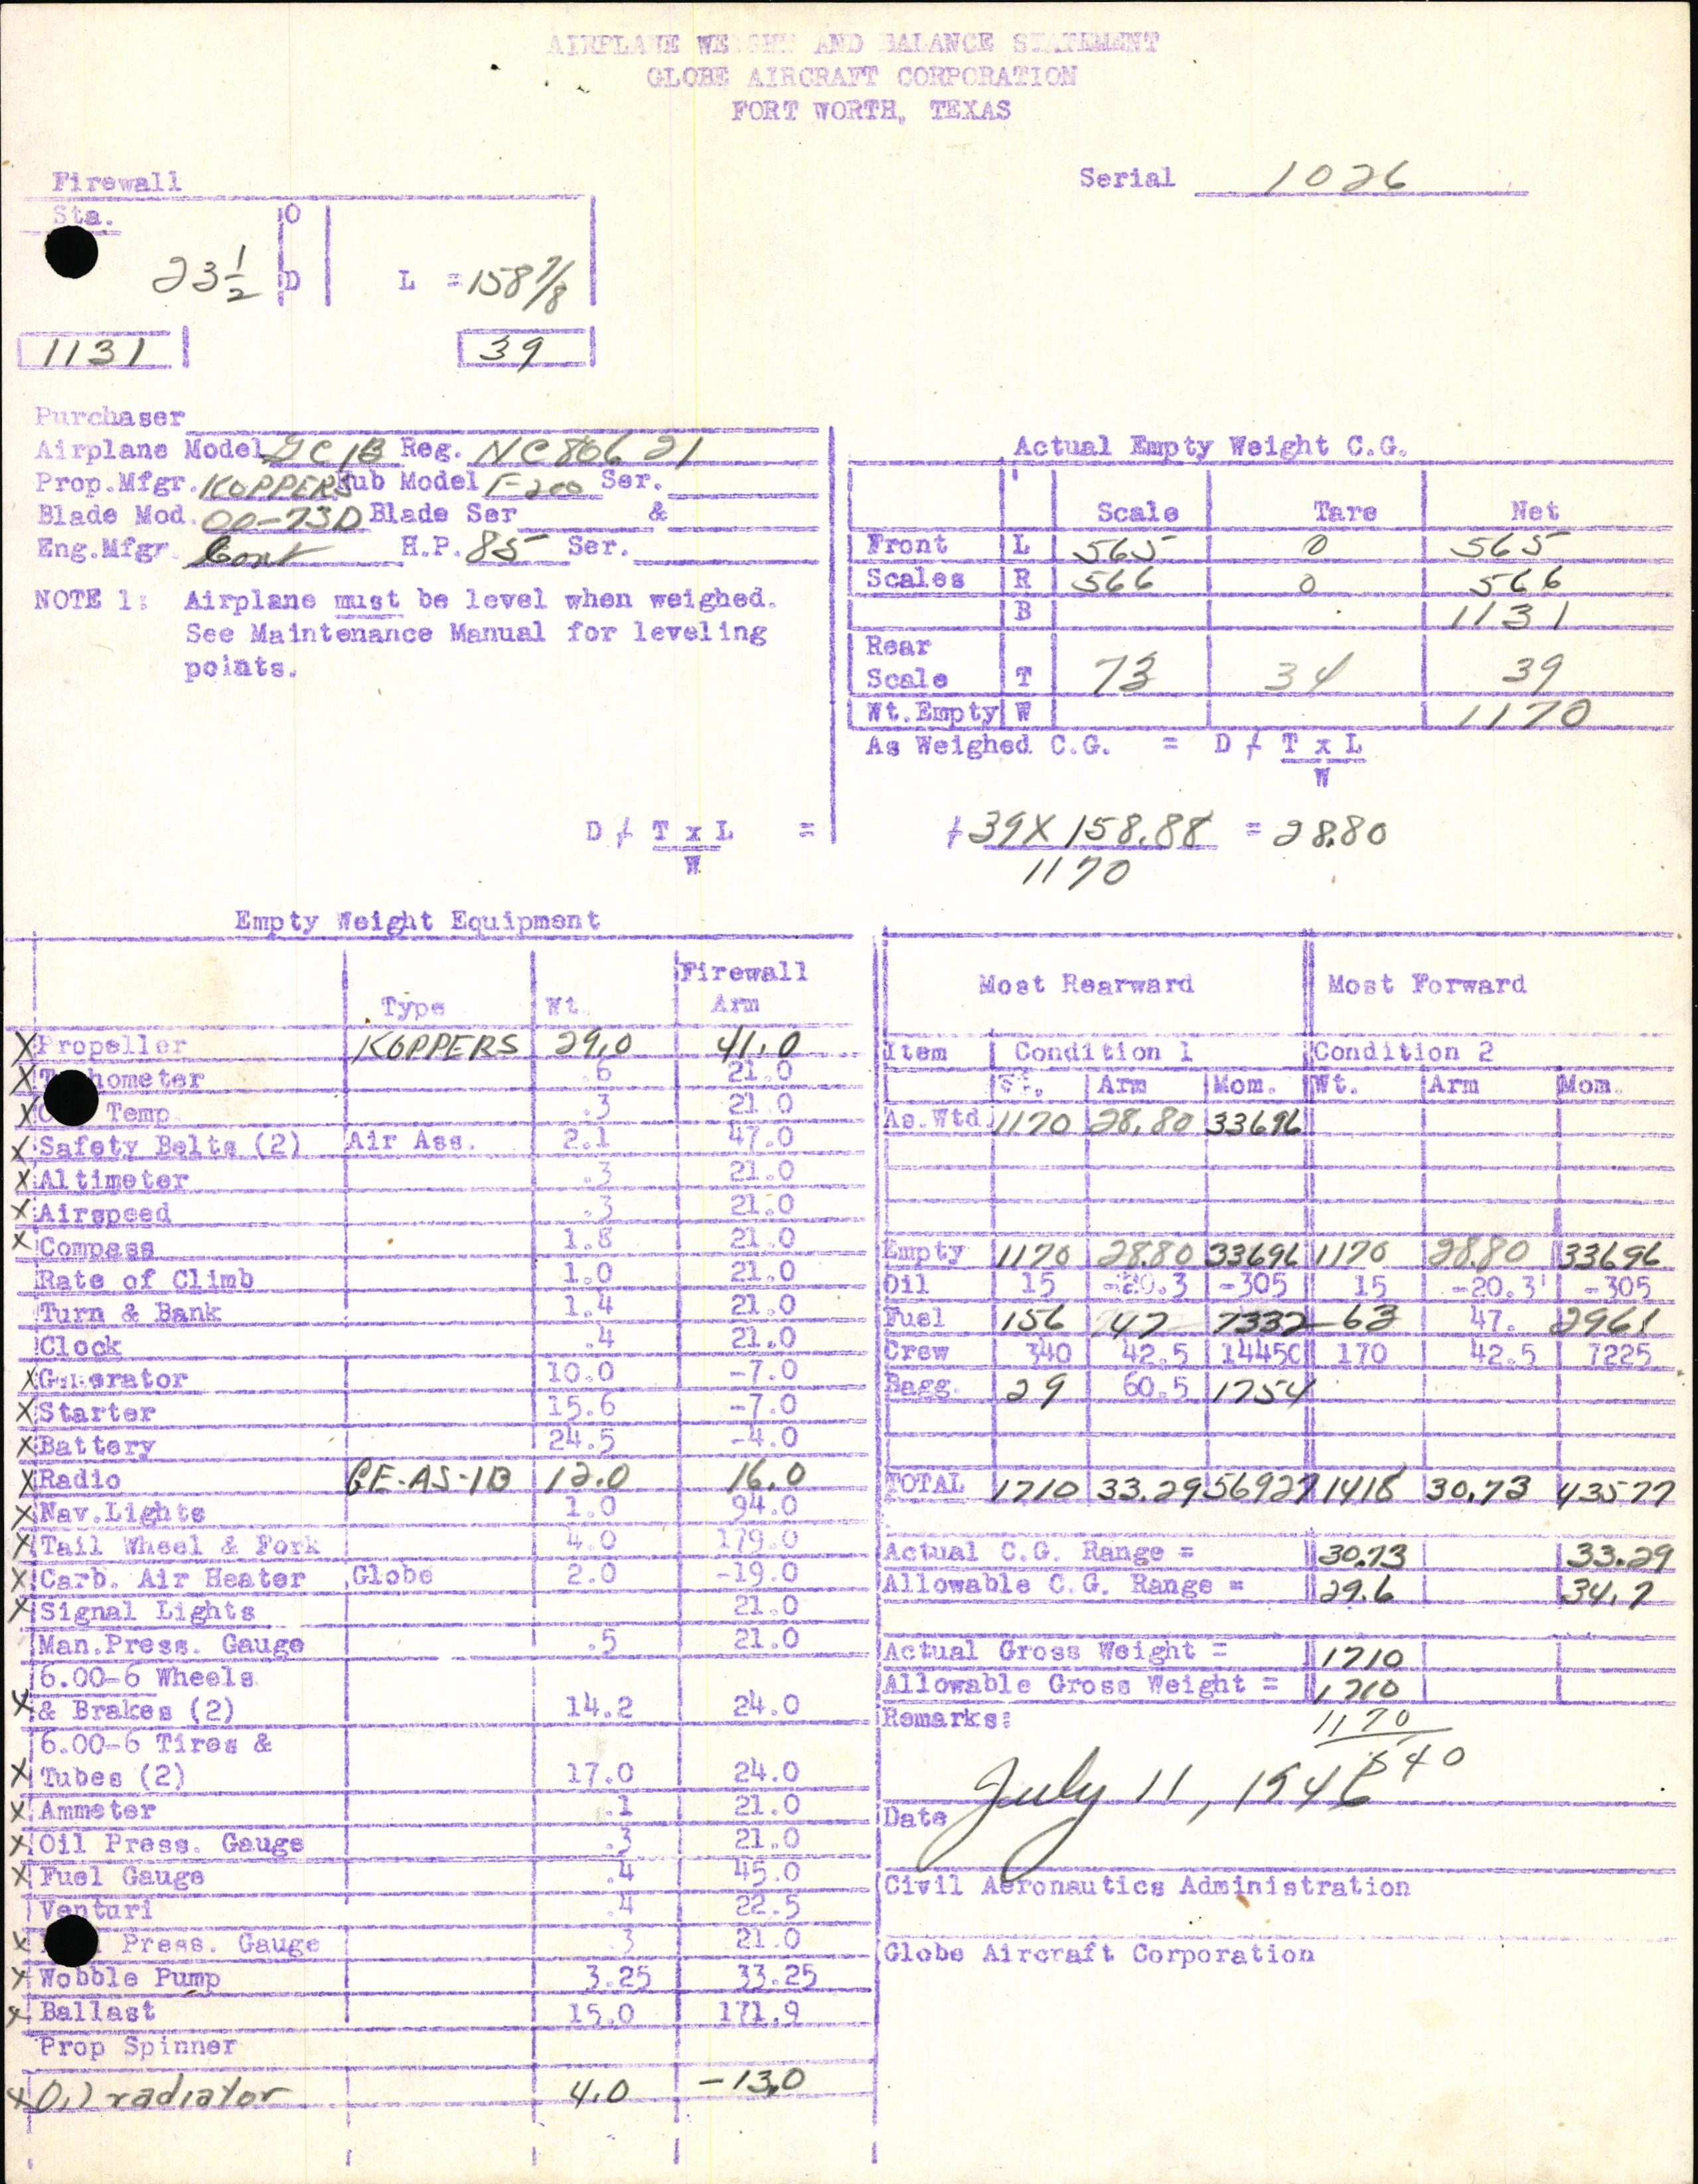 AIRPLANE WEIGHT AND BALANCE STATEMENT
GLOBE AIRCRAFT CORPORATION
FORT WORTH, TEXAS
Serial 1026
Firewall
Sta. O
23 1/2 D L = 158 7/8
1131 39
Purchaser
Airplane Model GC1B Reg. NC80621
Prop.Mfgr. KOPPERS Hub Model F-200 Ser.
Blade Mod. 00-73D Blade Ser &
Eng.Mfgr. Cont H.P. 85 Ser.
NOTE 1: Airplane must be level when weighed.
See Maintenance Manual for leveling
points.
Actual Empty Weight C.G.
Scale Tare Net
Front L 565 0 565
Scales R 566 0 566
B 1131
Rear
Scale T 73 34 39
Wt.Empty W 1170
As Weighed C.G. = D + T x L
W
D + T x L = + 39 X 158.88 = 28.80
W 1170
Empty Weight Equipment
Type Wt. Firewall Arm
X Propeller KOPPERS 29.0 41.0
X Tachometer .6 21.0
X Temp. .3 21.0
X Safety Belts (2) Air Ass. 2.1 47.0
X Altimeter .3 21.0
X Airspeed .3 21.0
X Compass 1.8 21.0
Rate of Climb 1.0 21.0
Turn & Bank 1.4 21.0
Clock .4 21.0
X Generator 10.0 -7.0
X Starter 15.6 -7.0
X Battery 24.5 -4.0
X Radio GE-AS-1B 12.0 16.0
X Nav.Lights 1.0 94.0
X Tail Wheel & Fork 4.0 179.0
X Carb. Air Heater Globe 2.0 -19.0
X Signal Lights 21.0
Man.Press. Gauge .5 21.0
6.00-6 Wheels
X & Brakes (2) 14.2 24.0
6.00-6 Tires &
X Tubes (2) 17.0 24.0
X Ammeter .1 21.0
X Oil Press. Gauge .3 21.0
X Fuel Gauge .4 45.0
Venturi .4 22.5
X Press. Gauge .3 21.0
X Wobble Pump 3.25 33.25
X Ballast 15.0 171.9
Prop Spinner
X Oil radiator 4.0 -13.0
Most Rearward Most Forward
Item Condition 1 Condition 2
Wt. Arm Mom. Wt. Arm Mom.
As.Wtd 1170 28.80 33696
Empty 1170 28.80 33696 1170 28.80 33696
Oil 15 -20.3 -305 15 -20.3 -305
Fuel 156 47 7332 63 47. 2961
Crew 340 42.5 14450 170 42.5 7225
Bagg. 29 60.5 1754
TOTAL 1710 33.29 56927 1418 30.73 43577
Actual C.G. Range = 30.73 33.29
Allowable C.G. Range = 29.6 34.7
Actual Gross Weight = 1710
Allowable Gross Weight = 1710
Remarks: 1170
540
Date July 11, 1946
Civil Aeronautics Administration
Globe Aircraft Corporation